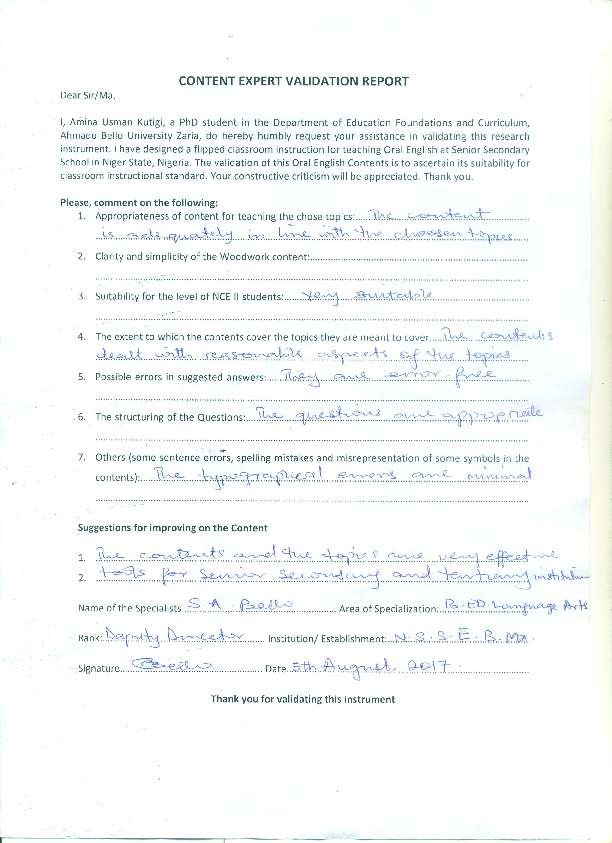 CONTENT EXPERT VALIDATION REPORT
Dear Sir/Ma,
I, Amina Usman Kutigi, a PhD student in the Department of Education Foundations and Curriculum,
Ahmadu Bello University Zaria, do hereby humbly request your assistance in validating this research
instrument. I have designed a flipped classroom instruction for teaching Oral English at Senior Secondary
School in Niger State, Nigeria. The validation of this Oral English Contents is to ascertain its suitability for
classroom instructional standard. Your constructive criticism will be appreciated. Thank you.
Please, comment on the following:
1. Appropriateness of content for teaching the chose topics: The content
is adequately in line with the choosen topics
2. Clarity and simplicity of the Woodwork content:
3. Suitability for the level of NCE II students: Very suitable
4. The extent to which the contents cover the topics they are meant to cover The contents
dealt with reasonable aspects of the topics
5. Possible errors in suggested answers: They are error-free
6. The structuring of the Questions: The questions are appropriate
7. Others (some sentence errors, spelling mistakes and misrepresentation of some symbols in the
contents): The typographical errors are minimal
Suggestions for improving on the Content
1. The contents and the topics are very effective
2. tools for senior secondary and tertiary institution
Name of the Specialists S A. Bello Area of Specialization: B.ED. Language Arts
Rank: Deputy Director Institution/ Establishment: N.S.S.E.B. Mx.
Signature Bello Date 5th August, 2017.
Thank you for validating this instrument